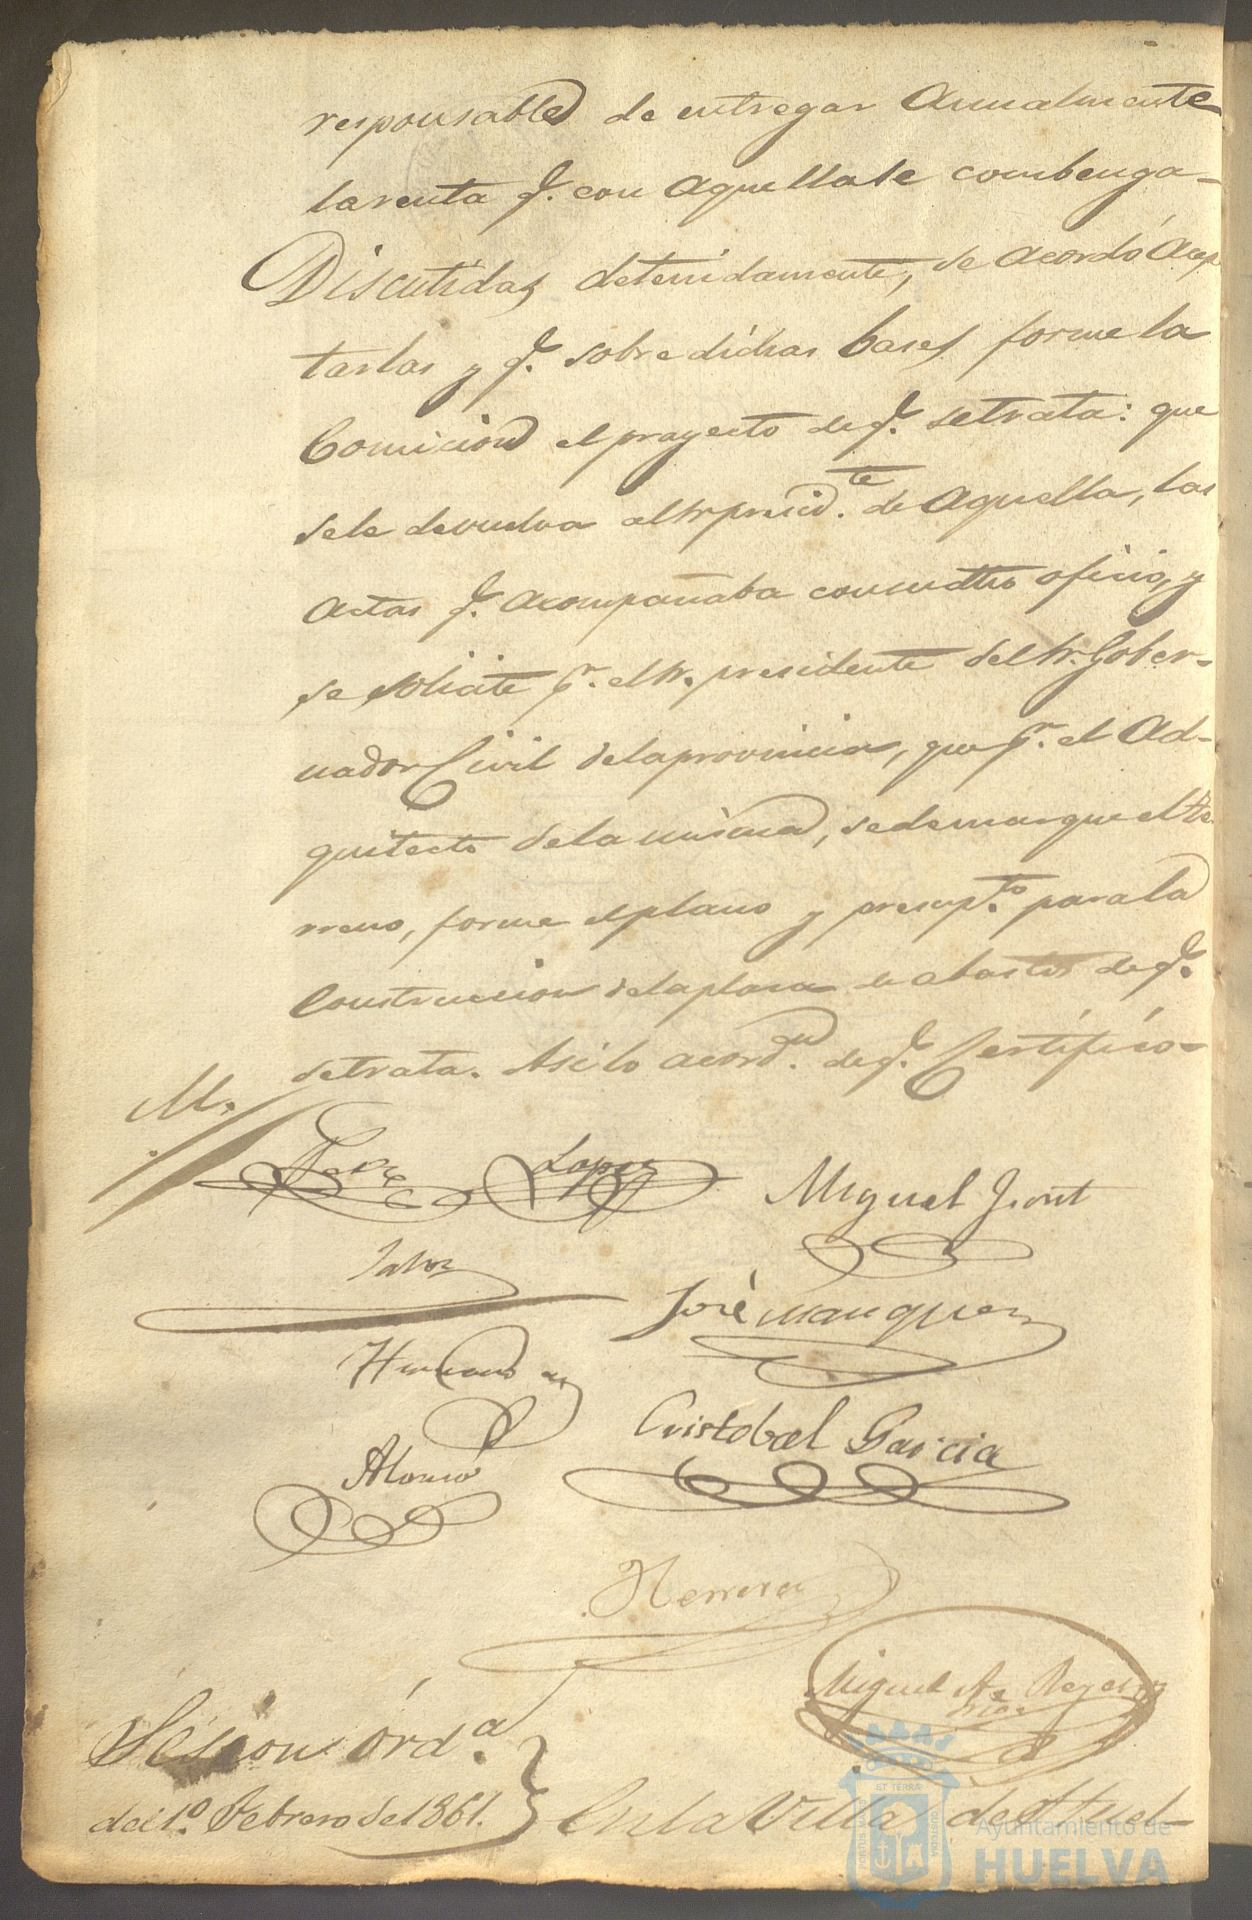 responsable de entregar anualmente
la renta q.e con aquella se combenga-
Discutidas detenidamente, se acordó acep
tarlas y q.e sobre dichas bases forme la
Comicion el proyecto de q.e se trata: que
se le devuelva al Sr presid.te de aquella, las
actas q.e acompañaba con su dho oficio, y
se solicite p.r el Sr. presidente del Sr. Gober-
nador Civil de la provincia, que p.r el Ad-
quitecto de la misma, se demarque el te
rreno, forme el plano y presup.to para la
Construccion de la plaza de abastos de q.e
se trata. Asi lo acord.n de q.e Certifico-
M.
Lopez
Miguel
José Marquez
Hernandez
Cristobal Garcia
Alonso
Herrera
Miguel
Sesion órd.a
del 1.º Febrero de 1861. } En la Villa de Huel-
Ayuntamiento de
HUELVA